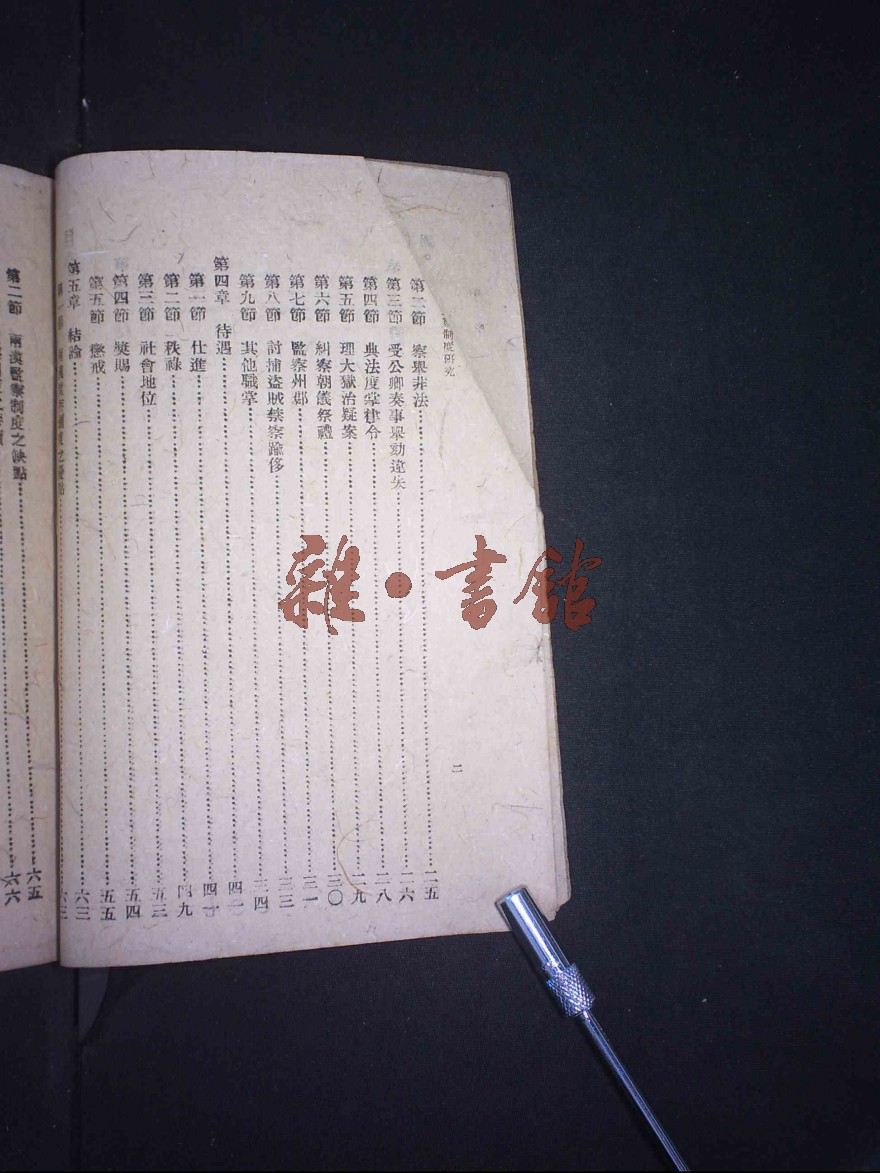 制度研究
二
第二節 察舉非法 二五
第三節 受公卿奏事舉劾違失 二六
第四節 典法度掌律令 二八
第五節 理大獄治疑案 二九
第六節 糾察朝儀祭禮 三〇
第七節 監察州郡 三一
第八節 討捕盜賊禁察踰侈 三三
第九節 其他職掌 三四
第四章 待遇 四一
第一節 仕進 四一
第二節 秩祿 四九
第三節 社會地位 五三
第四節 獎賜 五四
第五節 懲戒 五五
第五章 結論 六三
第一節 六三
六五
第二節 兩漢監察制度之缺點 六六
雜·書館